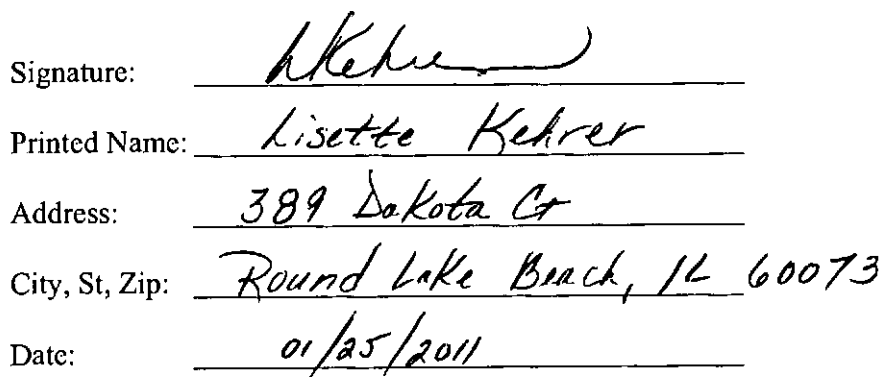 Signature: LKehrer
Printed Name: Lisette Kehrer
Address: 389 Dakota Ct
City, St, Zip: Round Lake Beach, IL 60073
Date: 01/25/2011